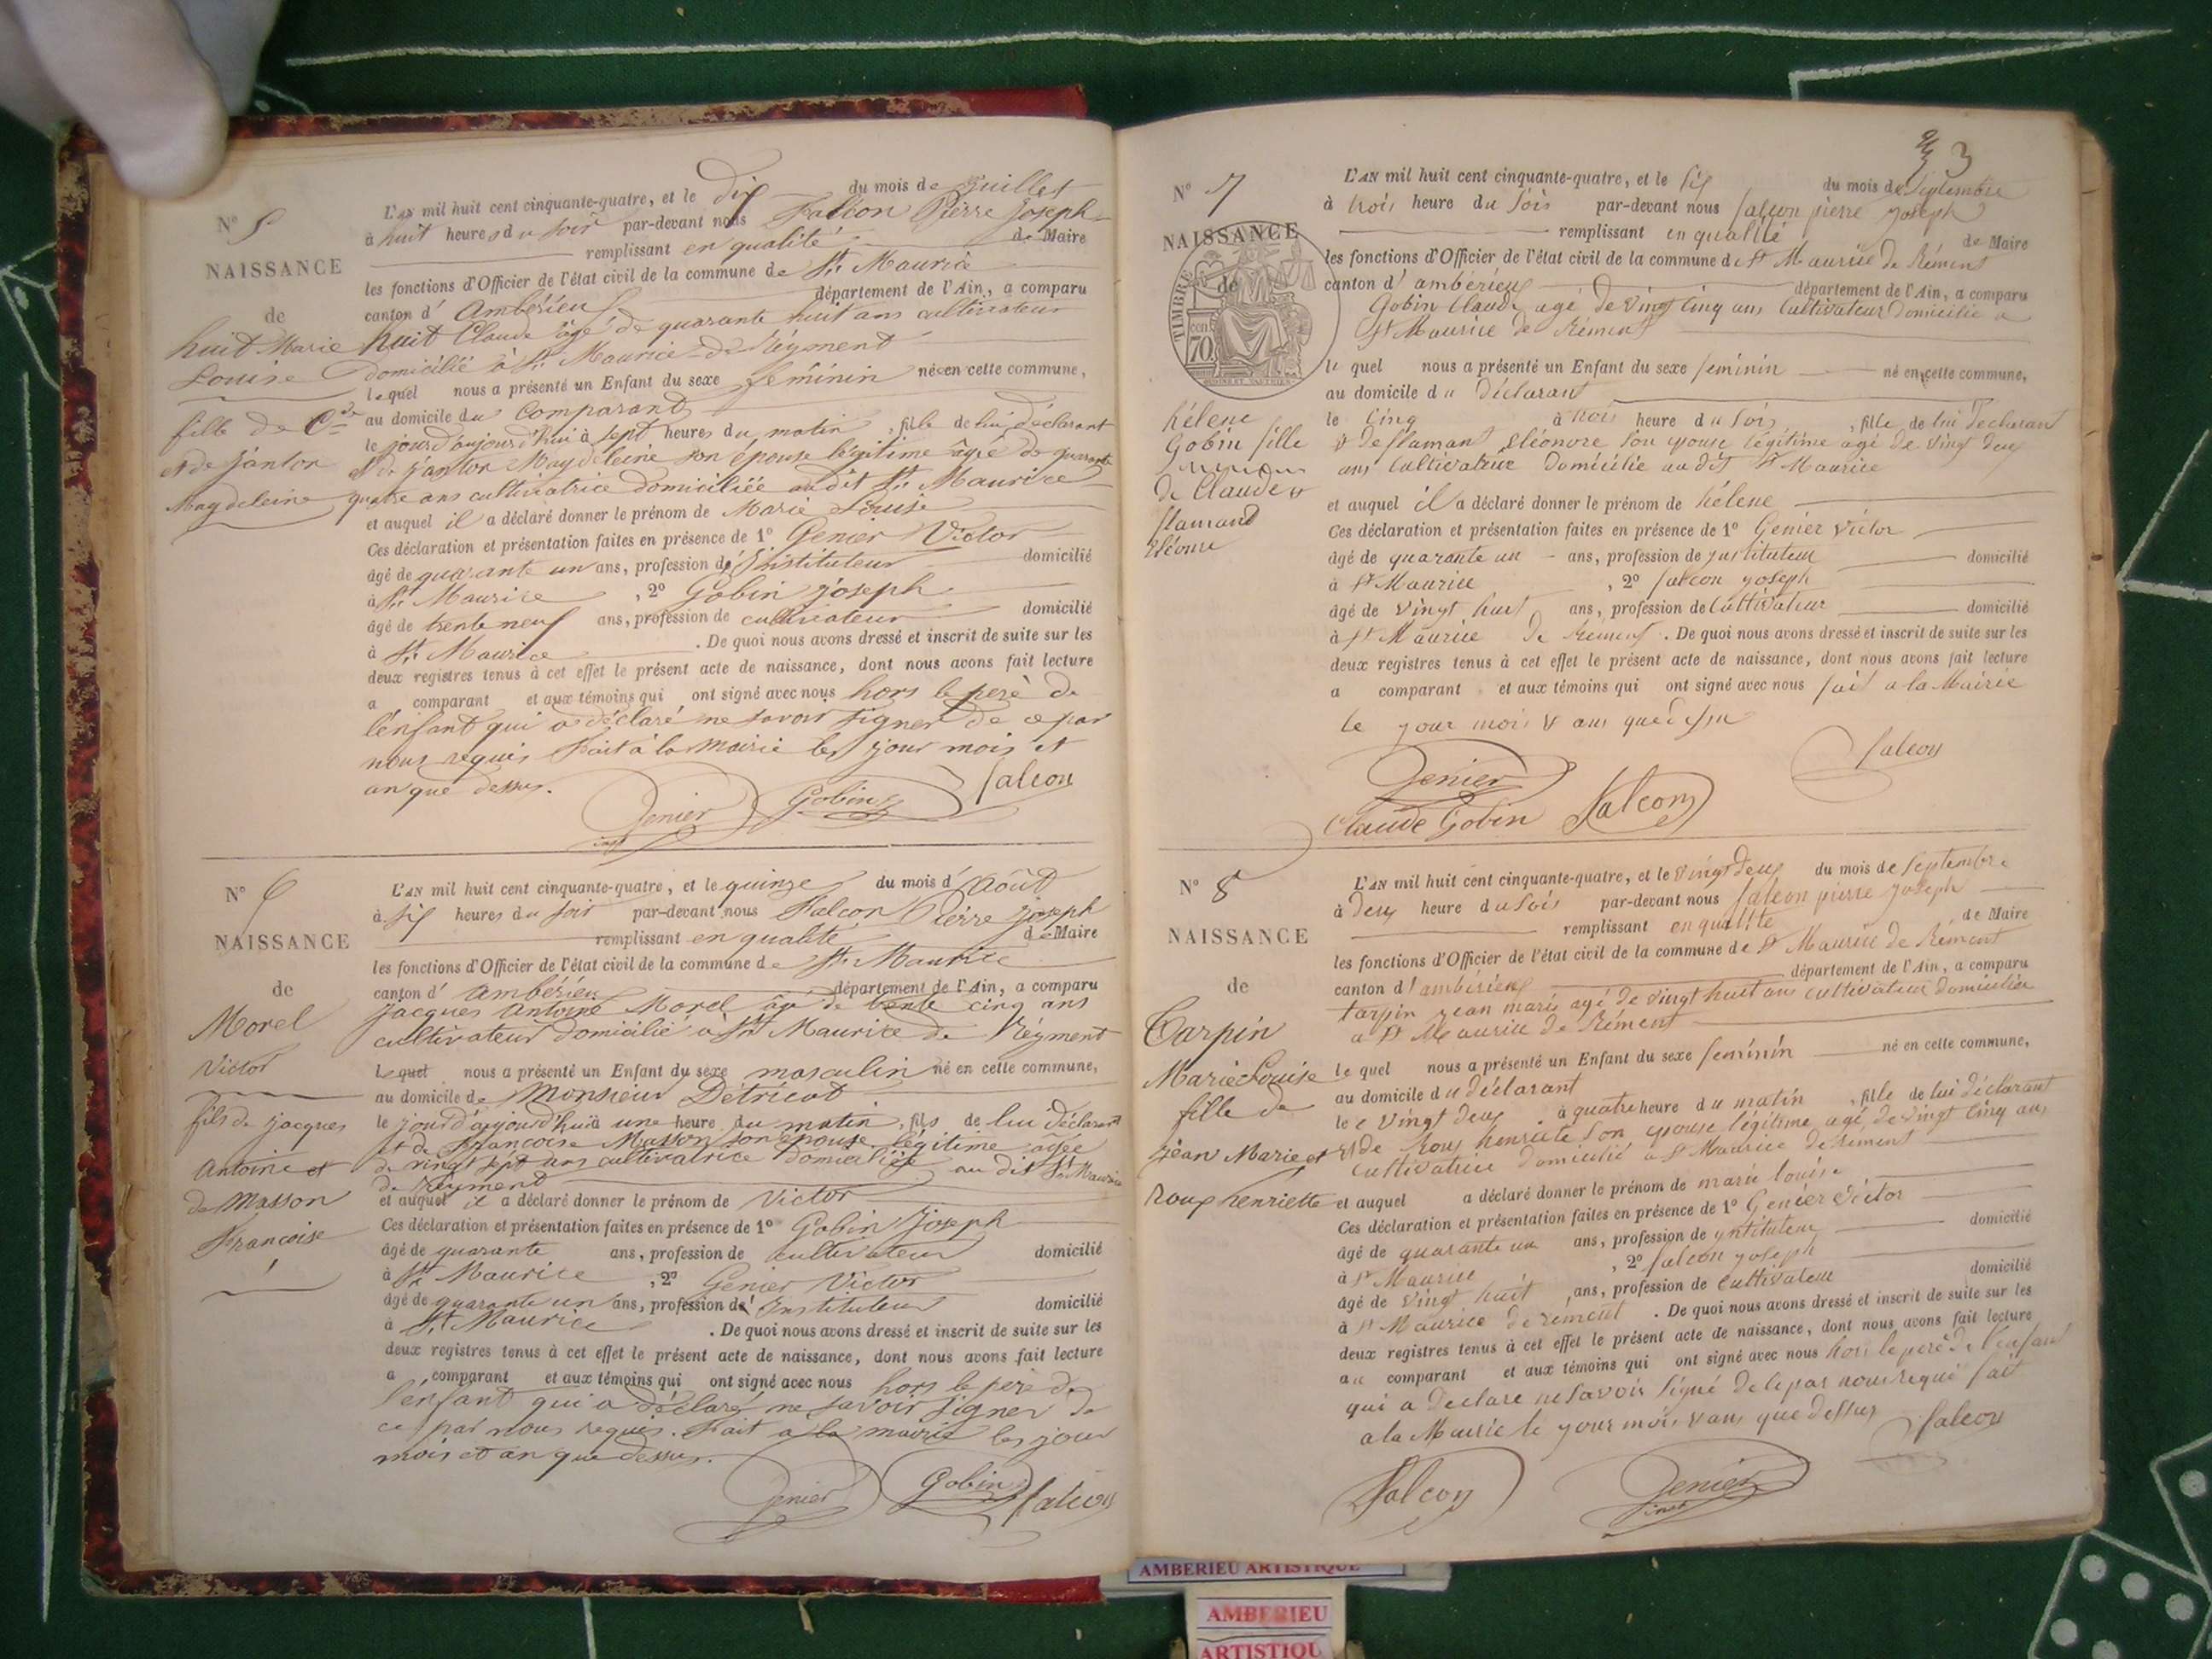 N° 5
NAISSANCE
de
huit Marie
Louise
fille de Cde
et de Jantor
Magdeleine
L'AN mil huit cent cinquante-quatre, et le dix du mois de Juillet
à huit heures du soir par-devant nous Falcon Pierre Joseph
remplissant en qualité de Maire
les fonctions d'Officier de l'état civil de la commune de St. Maurice
canton d' Ambérieu département de l'Ain, a comparu
huit Claude âgé de quarante huit ans cultivateur
domicilié à St. Maurice de Régment
lequel nous a présenté un Enfant du sexe féminin né en cette commune,
au domicile du Comparant
le jour d'aujourd'hui à sept heures du matin, fille de lui déclarant
et de Jantor Magdeleine son épouse légitime âgée de quarante
quatre ans cultivatrice domiciliée au dit St. Maurice
et auquel il a déclaré donner le prénom de Marie Louise
Ces déclaration et présentation faites en présence de 1° Genier Victor
âgé de quarante un ans, profession d'Instituteur domicilié
à St. Maurice, 2° Gobin Joseph
âgé de trente neuf ans, profession de cultivateur domicilié
à St. Maurice. De quoi nous avons dressé et inscrit de suite sur les
deux registres tenus à cet effet le présent acte de naissance, dont nous avons fait lecture
a comparant et aux témoins qui ont signé avec nous hors le père de
l'enfant qui a déclaré ne savoir signer de ce par
nous requis Fait à la mairie les jour mois et
an que dessus.
Genier Gobin falcon
inst
N° 6
NAISSANCE
de
Morel
Victor
fils de Jacques
Antoine et
de Masson
Francoise
L'AN mil huit cent cinquante-quatre, et le quinze du mois d'Août
à six heures du soir par-devant nous Falcon Pierre Joseph
remplissant en qualité de Maire
les fonctions d'Officier de l'état civil de la commune de St. Maurice
canton d' Ambérieu département de l'Ain, a comparu
Jacques Antoine Morel âgé de trente cinq ans
cultivateur domicilié à St Maurice de Régment
Lequel nous a présenté un Enfant du sexe masculin né en cette commune,
au domicile de Monsieur Détricat
le jour d'aujourd'hui à une heure du matin, fils de lui déclarant
et de Francoise Masson son épouse légitime âgée
de vingt sept ans cultivatrice domiciliée au dit St. Maurice
de Régment
et auquel il a déclaré donner le prénom de Victor
Ces déclaration et présentation faites en présence de 1° Gobin Joseph
âgé de quarante ans, profession de cultivateur domicilié
à St. Maurice, 2° Genier Victor
âgé de quarante un ans, profession d'Instituteur domicilié
à St. Maurice. De quoi nous avons dressé et inscrit de suite sur les
deux registres tenus à cet effet le présent acte de naissance, dont nous avons fait lecture
a comparant et aux témoins qui ont signé avec nous hors le père de
l'enfant qui a déclaré ne savoir signer de
ce par nous requis. Fait a la mairie les jour
mois et an que dessus.
Genier Gobin falcon
3
N° 7
NAISSANCE
de
TIMBRE
70
hélene
Gobin fille
de Claude &
flamand
Eléonore
L'AN mil huit cent cinquante-quatre, et le six du mois de Septembre
à trois heure du soir par-devant nous falcon pierre joseph
remplissant en qualité de Maire
les fonctions d'Officier de l'état civil de la commune de St Maurice de Rément
canton d' ambérieux département de l'Ain, a comparu
Gobin Claude agé de vingt cinq ans Cultivateur Domicilié a
St Maurice de Rément
le quel nous a présenté un Enfant du sexe feminin né en cette commune,
au domicile du déclarant
le Cinq à trois heure du soir, fille de lui declarant
& de flamant Eléonore son epouse légitime agé de vingt deux
ans Cultivatrice Domicilié au dit St Maurice
et auquel il a déclaré donner le prénom de hélene
Ces déclaration et présentation faites en présence de 1° Genier victor
âgé de quarante un ans, profession de justituteur domicilié
à St Maurice, 2° falcon joseph
âgé de vingt huit ans, profession de Cultivateur domicilié
à St Maurice de Rement. De quoi nous avons dressé et inscrit de suite sur les
deux registres tenus à cet effet le présent acte de naissance, dont nous avons fait lecture
a comparant et aux témoins qui ont signé avec nous fait a la Mairie
le jour mois & ans que dessu
Genier falcon
Claude Gobin Falcon
N° 8
NAISSANCE
de
Tarpin
Marie Louise
fille de
Jean Marie et
Roux henriette
L'AN mil huit cent cinquante-quatre, et le vingt deux du mois de Septembre
à deux heure du soir par-devant nous falcon pierre joseph
remplissant en qualité de Maire
les fonctions d'Officier de l'état civil de la commune de St Maurice de Rément
canton d'ambérieux département de l'Ain, a comparu
tarpin jean marie agé de vingt huit ans cultivateur domicilié
a St Maurice de Rément
le quel nous a présenté un Enfant du sexe feminin né en cette commune,
au domicile du déclarant
le vingt deux à quatre heure du matin, fille de lui déclarant
et de Roux henriete son epouse légitime agé de vingt Cinq ans
Cultivatrice domicilié a St Maurice de rement
et auquel a déclaré donner le prénom de marie louise
Ces déclaration et présentation faites en présence de 1° Genier victor
âgé de quarante un ans, profession de jntituteur domicilié
à St Maurice, 2° falcon joseph
âgé de vingt huit ans, profession de Cultivateur domicilié
à St Maurice de rément. De quoi nous avons dressé et inscrit de suite sur les
deux registres tenus à cet effet le présent acte de naissance, dont nous avons fait lecture
au comparant et aux témoins qui ont signé avec nous hors le peré de l'enfant
qui a Declare ne savoir signé de ce par nous requi fait
a la Mairie le jour mois & ans que dessus falcon
Falcon Genier
inst
AMBERIEU ARTISTIQUE
AMBERIEU
ARTISTIQU